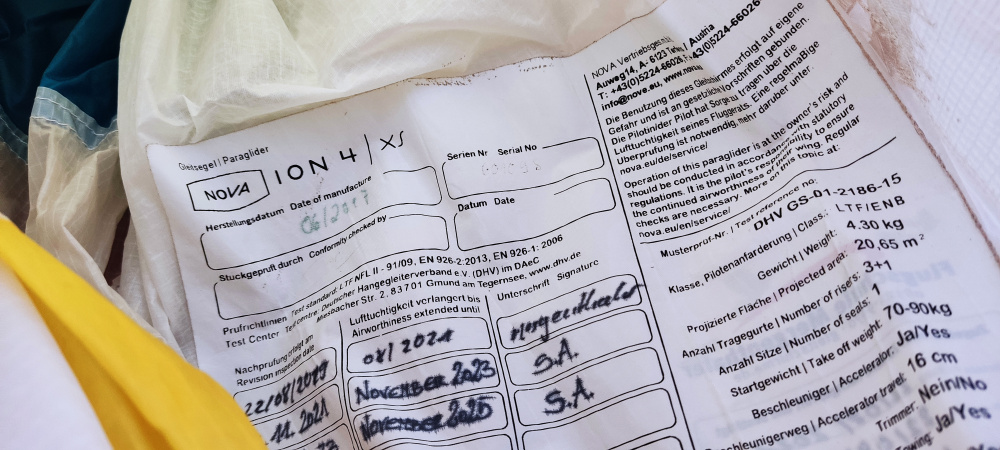 Gleitsegel | Paraglider
NOVA ION 4 | XS
Herstellungsdatum Date of manufacture
06/2017
Serien Nr Serial No
Stückgeprüft durch Conformity checked by
Datum Date
Prüfrichtlinien Test standard: LTF NFL II - 91/09, EN 926-2:2013, EN 926-1: 2006
Test Center Testcentre: Deutscher Hangegleiterverband e.V. (DHV) im DAeC
Miesbacher Str. 2, 83701 Gmund am Tegernsee, www.dhv.de
Nachprüfung erfolgt am
Revision inspection date
Lufttüchtigkeit verlängert bis
Airworthiness extended until
Unterschrift Signature
22/08/2019
08/2021
11.2021
November 2023
S.A.
November 2025
S.A.
NOVA Vertriebsges.m.b.H.
Auweg14, A- 6123 Terfens / Austria
T: +43(0)5224-66026, F: +43(0)5224-66026
info@nova.eu, www.nova.eu
Die Benutzung dieses Gleitschirmes erfolgt auf eigene
Gefahr und ist an gesetzliche Vorschriften gebunden.
Der Pilot hat Sorge zu tragen über die
Lufttüchtigkeit seines Fluggeräts. Eine regelmäßige
Überprüfung ist notwendig, mehr darüber unter:
nova.eu/de/service/
Operation of this paraglider is at the owner's risk and
should be conducted in accordance with statutory
regulations. It is the pilot's responsibility to ensure
the continued airworthiness of their wing. Regular
checks are necessary. More on this topic at:
nova.eu/en/service/
Musterprüf-Nr. | Test reference no: DHV GS-01-2186-15
Klasse, Pilotenanforderung | Class.: LTF/ENB
Gewicht | Weight: 4.30 kg
Projizierte Fläche | Projected area: 20,65 m²
Anzahl Tragegurte | Number of rises: 3+1
Anzahl Sitze | Number of seats: 1
Startgewicht | Take off weight: 70-90kg
Beschleuniger | Accelerator: Ja/Yes
Beschleunigerweg | Accelerator travel: 16 cm
Trimmer: Nein/No
Towing: Ja/Yes